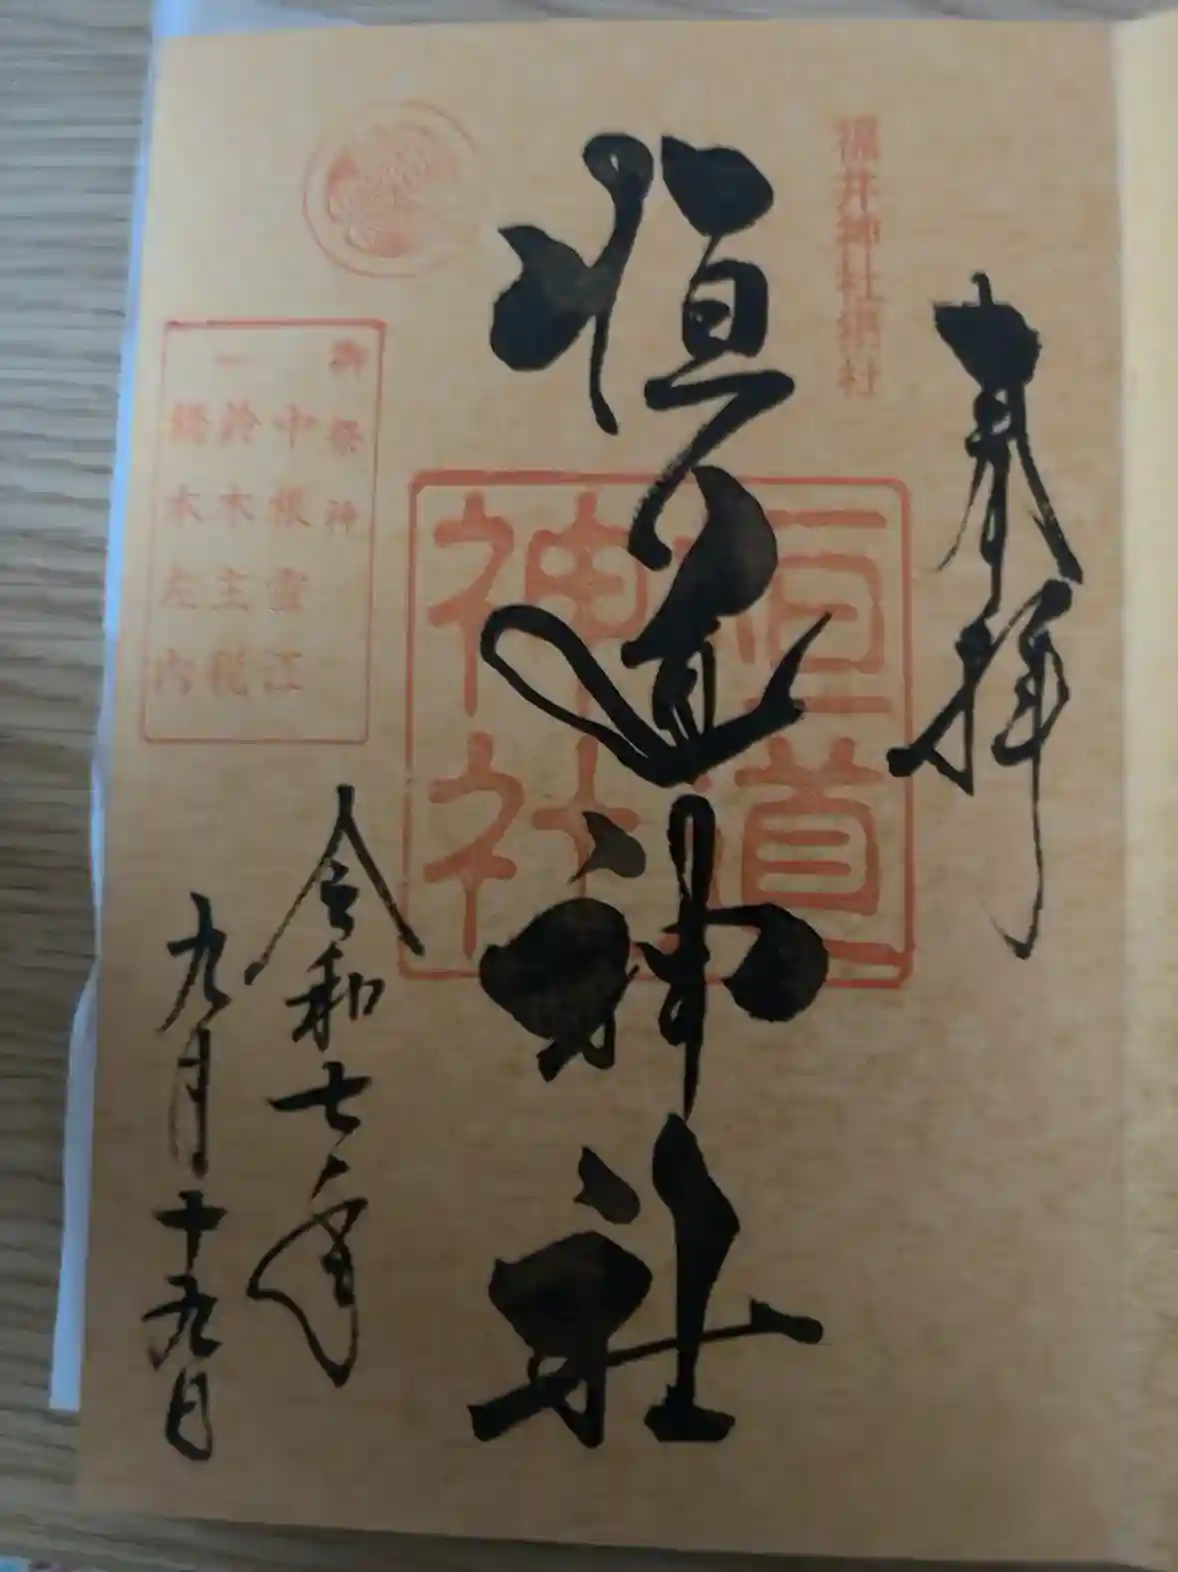 奉拝
福井神社摂社
恒道神社
恒道
神社
御祭神
中根雪江
鈴木主税
橋本左内
令和七年
九月十九日